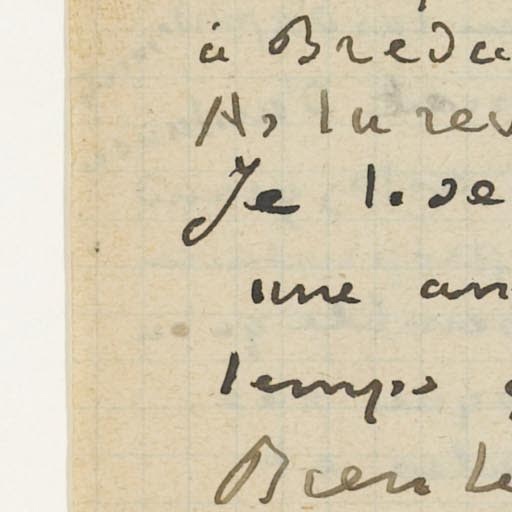 à Breda
As tu rev
Je te se
une an
temps q
Bien le